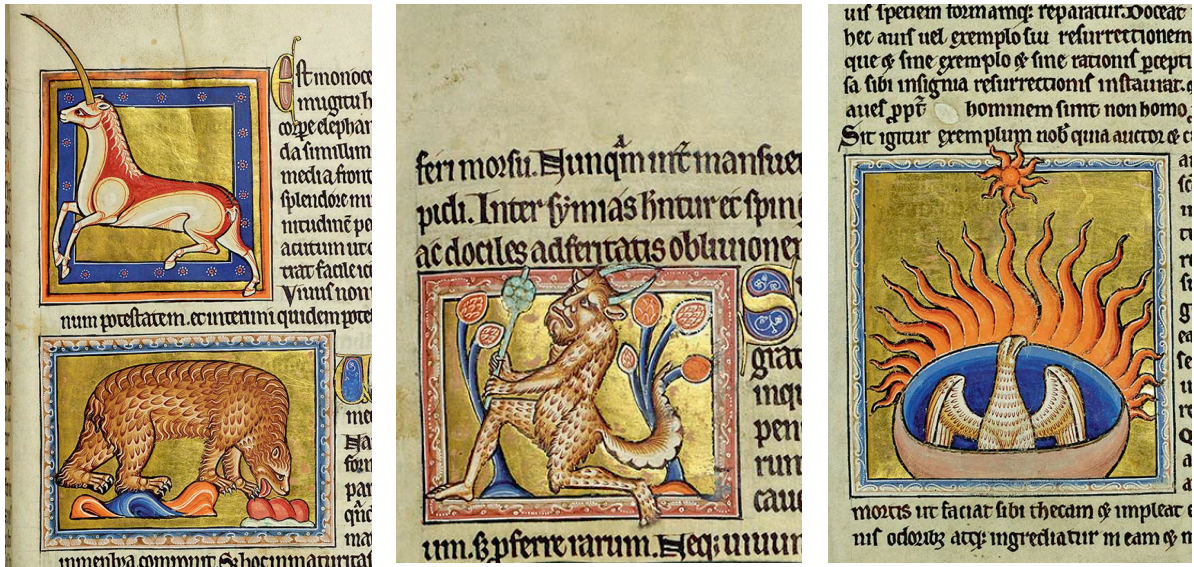 Est monoce
mugitu h
corpe elephan
da simillim
media front
splendore mi
nitudinē pe
acutum ut q
trat facile ic
Viuus non
num potestatem. et interimi quidem pote
me
Na
form
par
qn̄d
ma
inmenbra componit. S; hoc inmaturitas
feri morsu. Nunqm mansue
pidi. Inter symias hntur et sping
ac dociles ad feritatis obliuionem
S
grat
inqu
pen
rum
caue
um. S; pferre rarum. Neq; uiuun
uis speciem formamq; reparatur. Doceat
hec auis uel exemplo sui resurrectionem
que & sine exemplo & sine rationis pcepti
sa sibi insignia resurrectionis instaurat.
aues ppt hominem sunt non homo
Sit igitur exemplum nob quia auctor & c
mortis ut faciat sibi thecam & impleat
nis odorib; atq; ingrediatur in eam & m